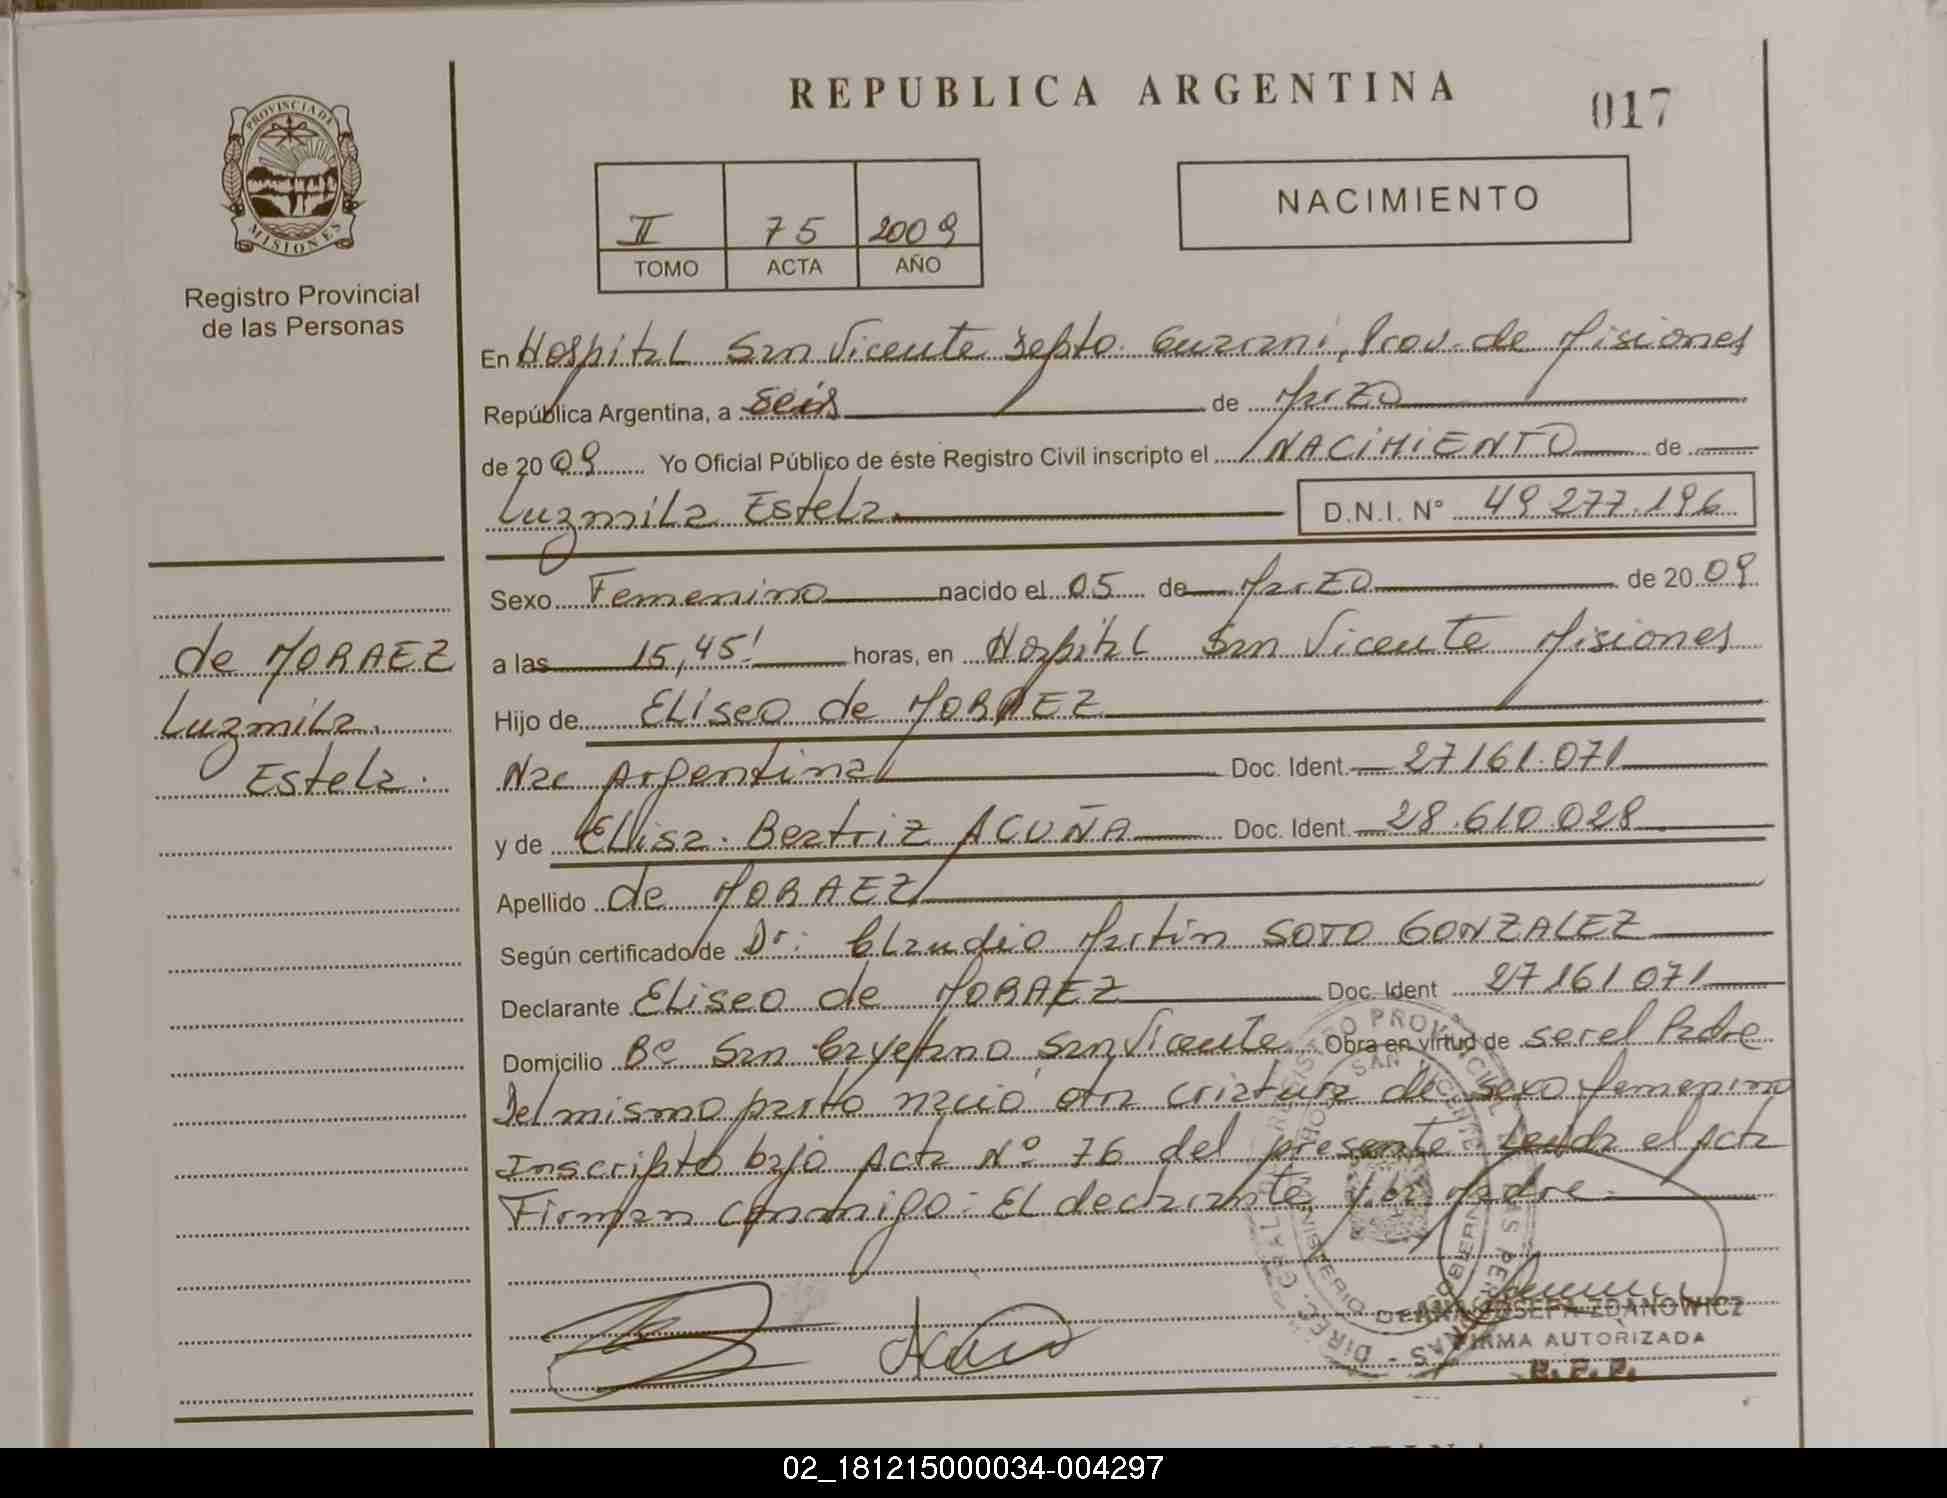 REPUBLICA ARGENTINA
017
PROVINCIA DE
MISIONES
Registro Provincial
de las Personas
II 75 2009
TOMO ACTA AÑO
NACIMIENTO
En Hospital San Vicente Depto. Guarani, Prov. de Misiones
República Argentina, a seis de Marzo
de 2009 Yo Oficial Público de éste Registro Civil inscripto el NACIMIENTO de
Luzmila Estela D.N.I. N° 49 277.196
Sexo Femenino nacido el 05 de Marzo de 2009
a las 15,45' horas, en Hospital San Vicente Misiones
Hijo de Eliseo de MORAEZ
Nac Argentina Doc. Ident. 27161.071
y de Elisa Beatriz ACUÑA Doc. Ident. 28.610.028
Apellido de MORAEZ
Según certificado de Dr: Claudio Martin SOTO GONZALEZ
Declarante Eliseo de MORAEZ Doc. Ident 27161071
Domicilio B° San Cayetano San Vicente Obra en virtud de ser el Padre
Del mismo parto nació otra criatura de sexo femenino
Inscripto bajo Acta N° 76 del presente Leida el Acta
Firman conmigo: El declarante y la Madre.
de MORAEZ
Luzmila
Estela.
ANA JOSEFA ZDANOWICZ
FIRMA AUTORIZADA
R.P.P.
02_181215000034-004297